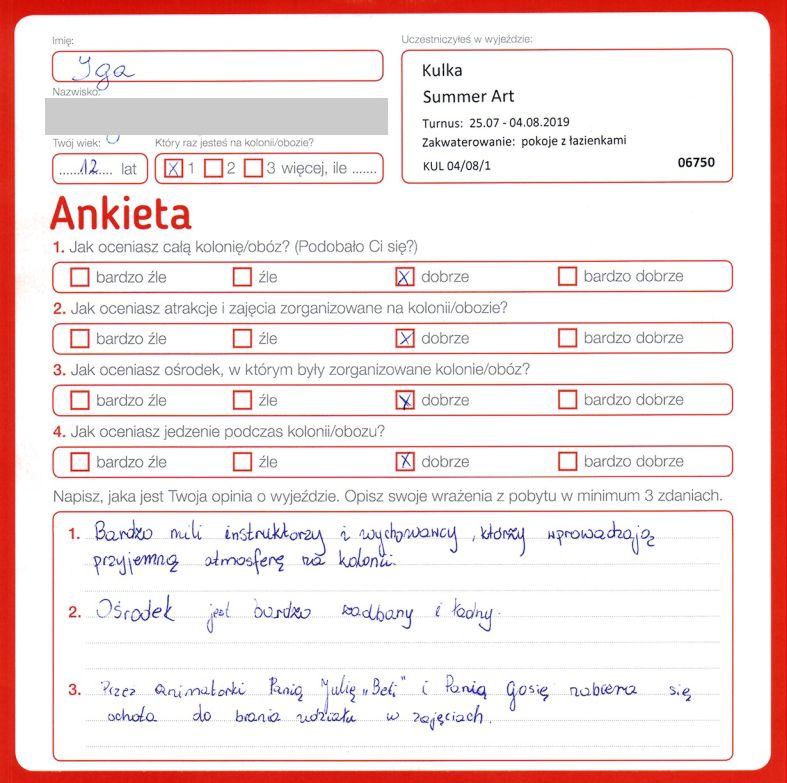 Imię:
Iga
Nazwisko:
Twój wiek:
12 lat
Który raz jesteś na kolonii/obozie?
X 1 2 3 więcej, ile .......
Uczestniczyłeś w wyjeździe:
Kulka
Summer Art
Turnus: 25.07 - 04.08.2019
Zakwaterowanie: pokoje z łazienkami
KUL 04/08/1 06750
Ankieta
1. Jak oceniasz całą kolonię/obóz? (Podobało Ci się?)
bardzo źle źle X dobrze bardzo dobrze
2. Jak oceniasz atrakcje i zajęcia zorganizowane na kolonii/obozie?
bardzo źle źle X dobrze bardzo dobrze
3. Jak oceniasz ośrodek, w którym były zorganizowane kolonie/obóz?
bardzo źle źle X dobrze bardzo dobrze
4. Jak oceniasz jedzenie podczas kolonii/obozu?
bardzo źle źle X dobrze bardzo dobrze
Napisz, jaka jest Twoja opinia o wyjeździe. Opisz swoje wrażenia z pobytu w minimum 3 zdaniach.
1. Bardzo mili instruktorzy i wychowawcy, którzy wprowadzają
przyjemną atmosferę na kolonii.
2. Ośrodek jest bardzo zadbany i ładny.
3. Przez animatorki Panią Julię „Beti" i Panią Gosię nabiera się
ochota do brania udziału w zajęciach.